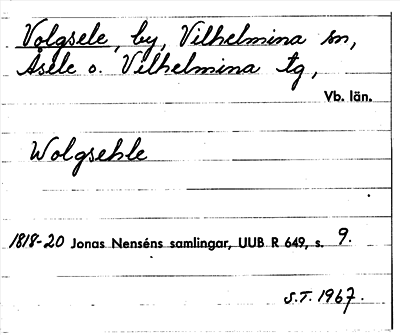 Volgsele, by, Vilhelmina sn,
Åsele o. Vilhelmina tg,
Vb. län.
Wolgsehle
1818-20 Jonas Nenséns samlingar, UUB R 649, s. 9.
S.T. 1967.